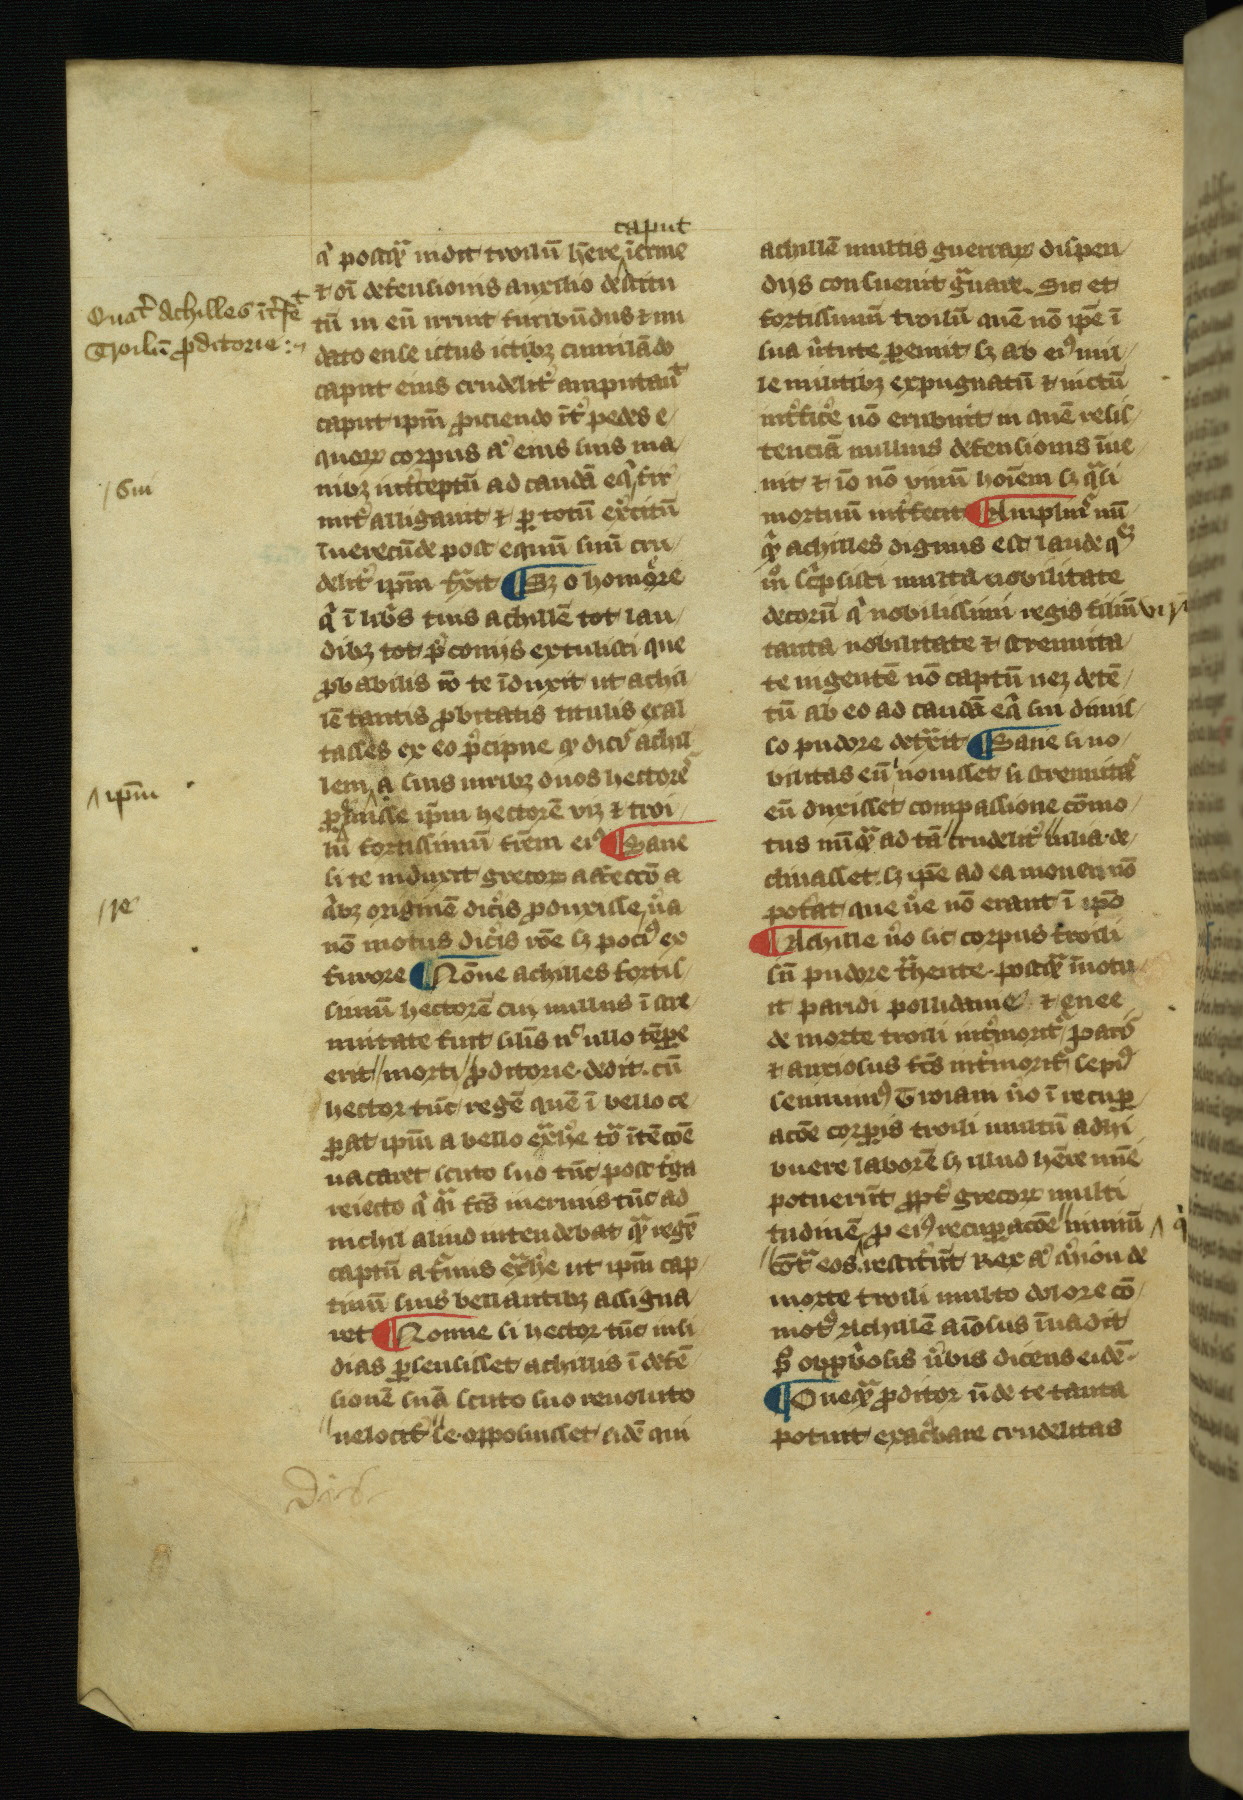 caput
q̄ postq̄ᷓ uidit troilū hr̄e ̭ īerme
⁊ oī defensionis auxilio destitu
tū in eū irruit furibūdus ⁊ nu
dato ense ictus ictibꝫ cumulādo
caput eius crudelit̉ amputauͭ
caput ipm̄ ꝓiciendo īt̉ pedes e
quoꝝ corpus a͛ eius suis ma
nibꝫ int̉ceptū ad caudā eq̄ ̭ fir
mit̉ alligauit ⁊ ꝑ totū exercitū
īuerecūde post equū suū cru
delit̉ ipm̄ tͣxit ¶ Sꝫ o homere
q̄ ī libris tuis achillē tot lau
dibꝫ tot p̄coniis extulisti que
ꝓbabilis rō te īduxit ut achil
lē tantis ꝓbitatis titulis exal
tasses ex eo p̄cipue ꝙ dicis achil
lem ̭ a suis uiribꝫ duos hectores
ꝑ̭misse ipm̄ hectorē viꝫ ⁊ troi
lū fortissimū frēm eiꝰ ¶ Sane
si te induxit grecoꝝ affeccō a
qͥbꝫ originē diceris ꝓduxisse ūͦa
nō motus diceris rōe sꝫ pociꝰ ex
furore ¶ Nōne achilles fortis
simū hectorē cui nullus ī stre
nuitate fuit similis nͨ ullo tēpore
erit ⫽ morti ⫽ ꝓditorie dedit cū
hector tūc regē quē ī bello ce
ꝑat ipm̄ a bello extͣhere totͣ ītēcōe
uacaret scuto suo tūc post terga
reiecto qͥ q̄ᷓsi fcs̄ inermis tūc ad
nichil aliud intendebat q̄ᷓ regē
captū a turmis extͣhere ut ipm̄ cap
tiuū suis bellantibꝫ assigna
ret ¶ Nonne si hector tūc insi
dias ꝑsensisset achillis ī defē
sionē suā scuto suo reuoluto
⫽ uelocit̉ ⫽ se opposuisset eidē qui
Quar̉ Achilles īt̉feͭ
Troilū ꝓditorie :~
/ sui
ʌ ipm̄
/ re
achillē multis guerraꝝ dispen
diis consueuit gͣuare. Sic et
fortissimū troilū quē nō ipe ī
sua ūtute ꝑemit sꝫ ab eiꝰ mil
le militibꝫ expugnatū ⁊ uictū
int̉ficere nō erubuit in quē resis
tenciā nullius defensionis īue
nit ⁊ iō nō viuū hoīem sꝫ qͣsi
mortuū int̉fecit ¶ Ampliꝰ nū
q̄ᷓ achilles dignus est laude queꝫ
tu sc̄psisti multa nobilitate
decorū qͥ nobilissimi regis filiū viꝝ
tanta nobilitate ⁊ strenuita
te uigentē nō captū neꝫ deuic
tū ab eo ad caudā eqͥ sui dimis
so pudore detͣxit ¶ Sane si no
bilitas eū nouisset si strenuitas
eū duxisset compassione cōmo
tus nūq̄ᷓ ad tā ⫽ crudelit̉ ⫽ uilia de
clinasset sꝫ ipe ad ea moueri nō
poterat que ūe nō erant ī ipō
¶ Achille ūo sic corpus troili
sū pudore tͣhente postq̄ᷓ īnotu
it paridi pollidame ⁊ enee
de morte troili int̉morit̉ paris
⁊ anxiosus fcs̄ int̉morit̉ sepiꝰ
seminiuꝰ Troiani ūo ī recuꝑ
acōe corꝑis troili multū adhi
buere laborē sꝫ illud hr̄e nīe
potuerūt ꝓpt̉ grecoꝝ multi
tudinē ̭ ꝓ eiꝰ recuꝑacōe ⫽ nimiū ʌ qͥ
⫽ cōtͣ eos restiterūt Rex a͛ mēnon de
morte troili multo dolore cō
motꝰ Achillē aīosus īuadit
⁊ opprobriosis ūbis dicens eidē
¶ Oneq̄ᷓ ꝓditor ūde te tanta
potuit exacerbare crudelitas